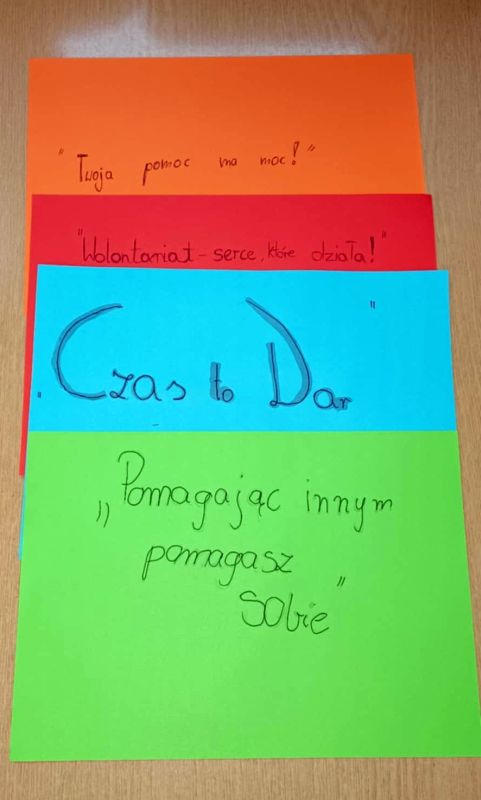 "Twoja pomoc ma moc!"
"Wolontariat - serce, które działa!"
"Czas to Dar"
„Pomagając innym
pomagasz
sobie"